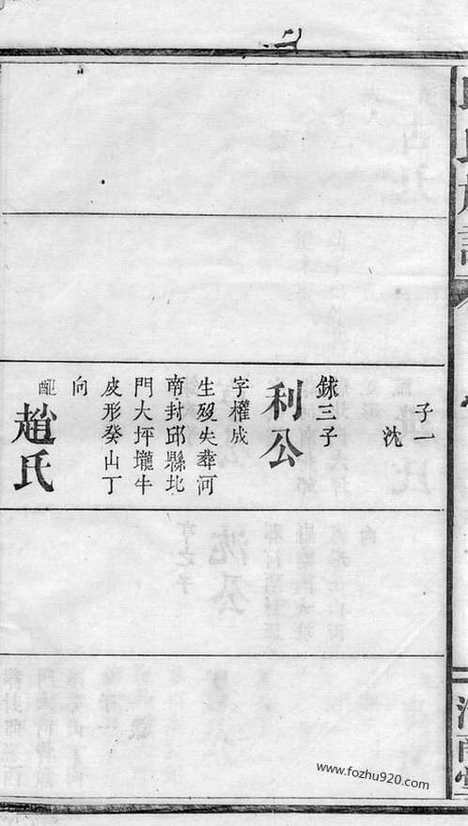 子一
沈
銶三子
利公
字權成
生歿失葬河
南封邱縣北
門大坪壠牛
皮形癸山丁
向
配趙氏
氏族譜
www.fozhu920.com